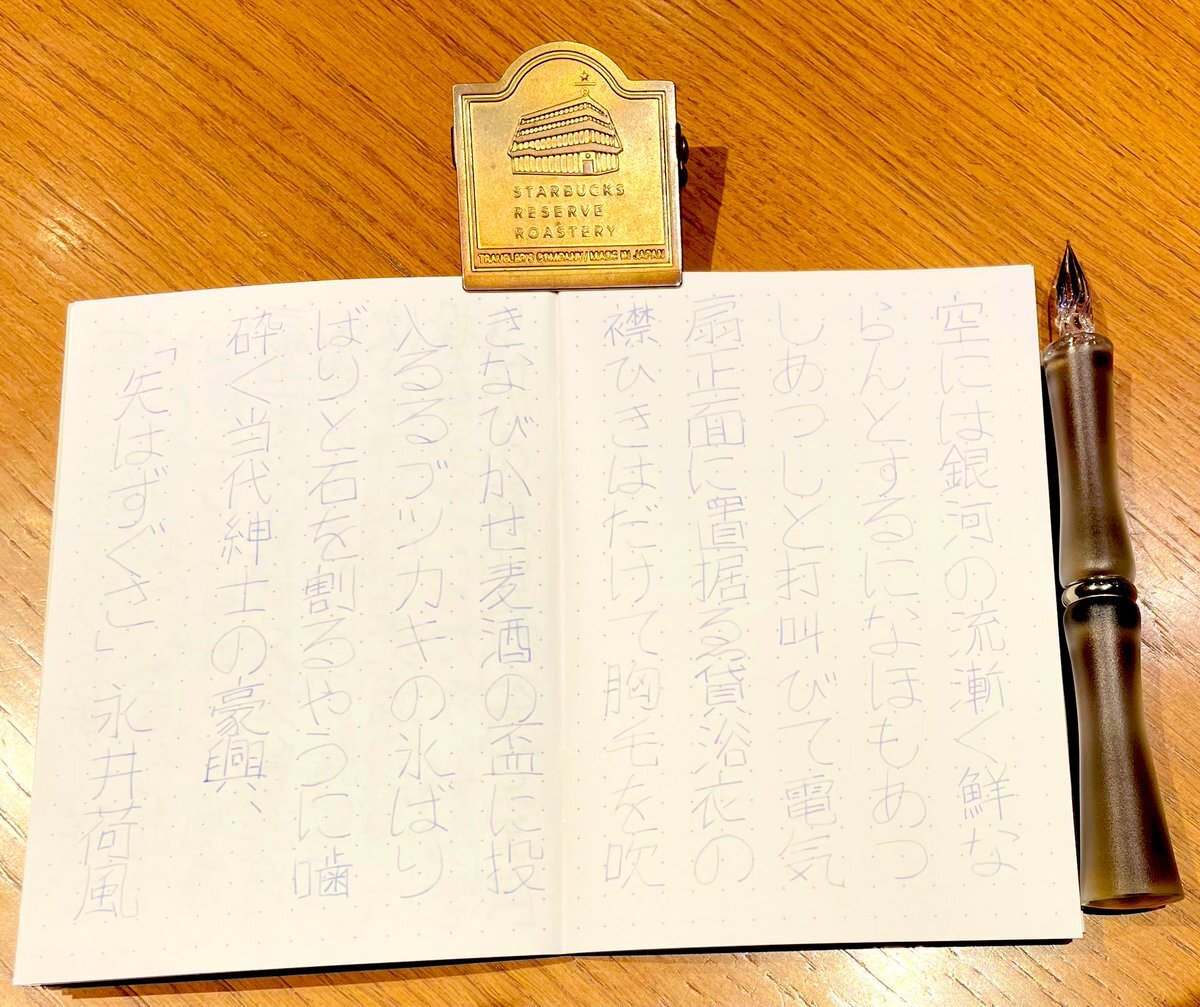 STARBUCKS
RESERVE
ROASTERY
TRAVELER'S COMPANY / MADE IN JAPAN
空には銀河の流漸く鮮な
らんとするになほもあつ
しあつしと打叫びて電気
扇正面に置据る貸浴衣の
襟ひきはだけて胸毛を吹
きなびかせ麦酒の盃に投
入るるブツカキの氷ばり
ばりと石を割るやうに噛
砕く当代紳士の豪興、
「矢はずぐさ」永井荷風